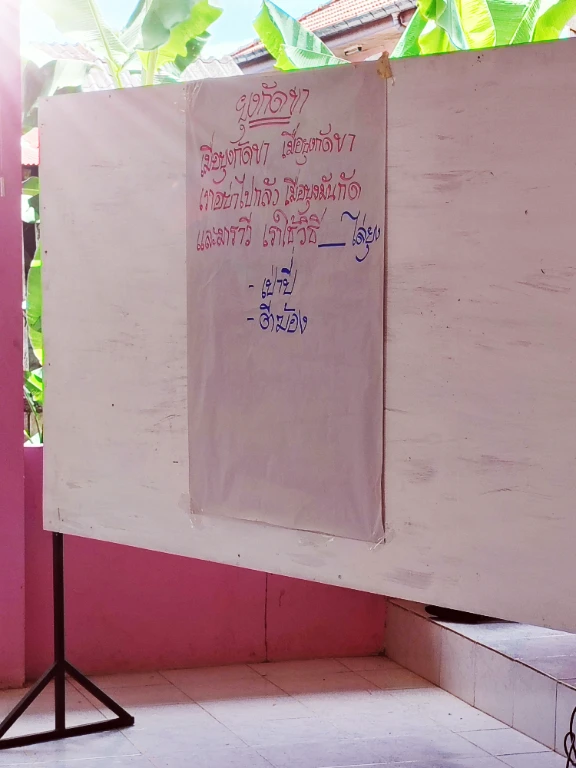 ยุงกัดขา
เมื่อยุงกัดขา เมื่อยุงกัดขา
เราอย่าไปกลัว เมื่อยุงมันกัด
และมาราวี เราใช้วิธี __ ไล่ยุง
- เป่าปี่
- ตีฆ้อง